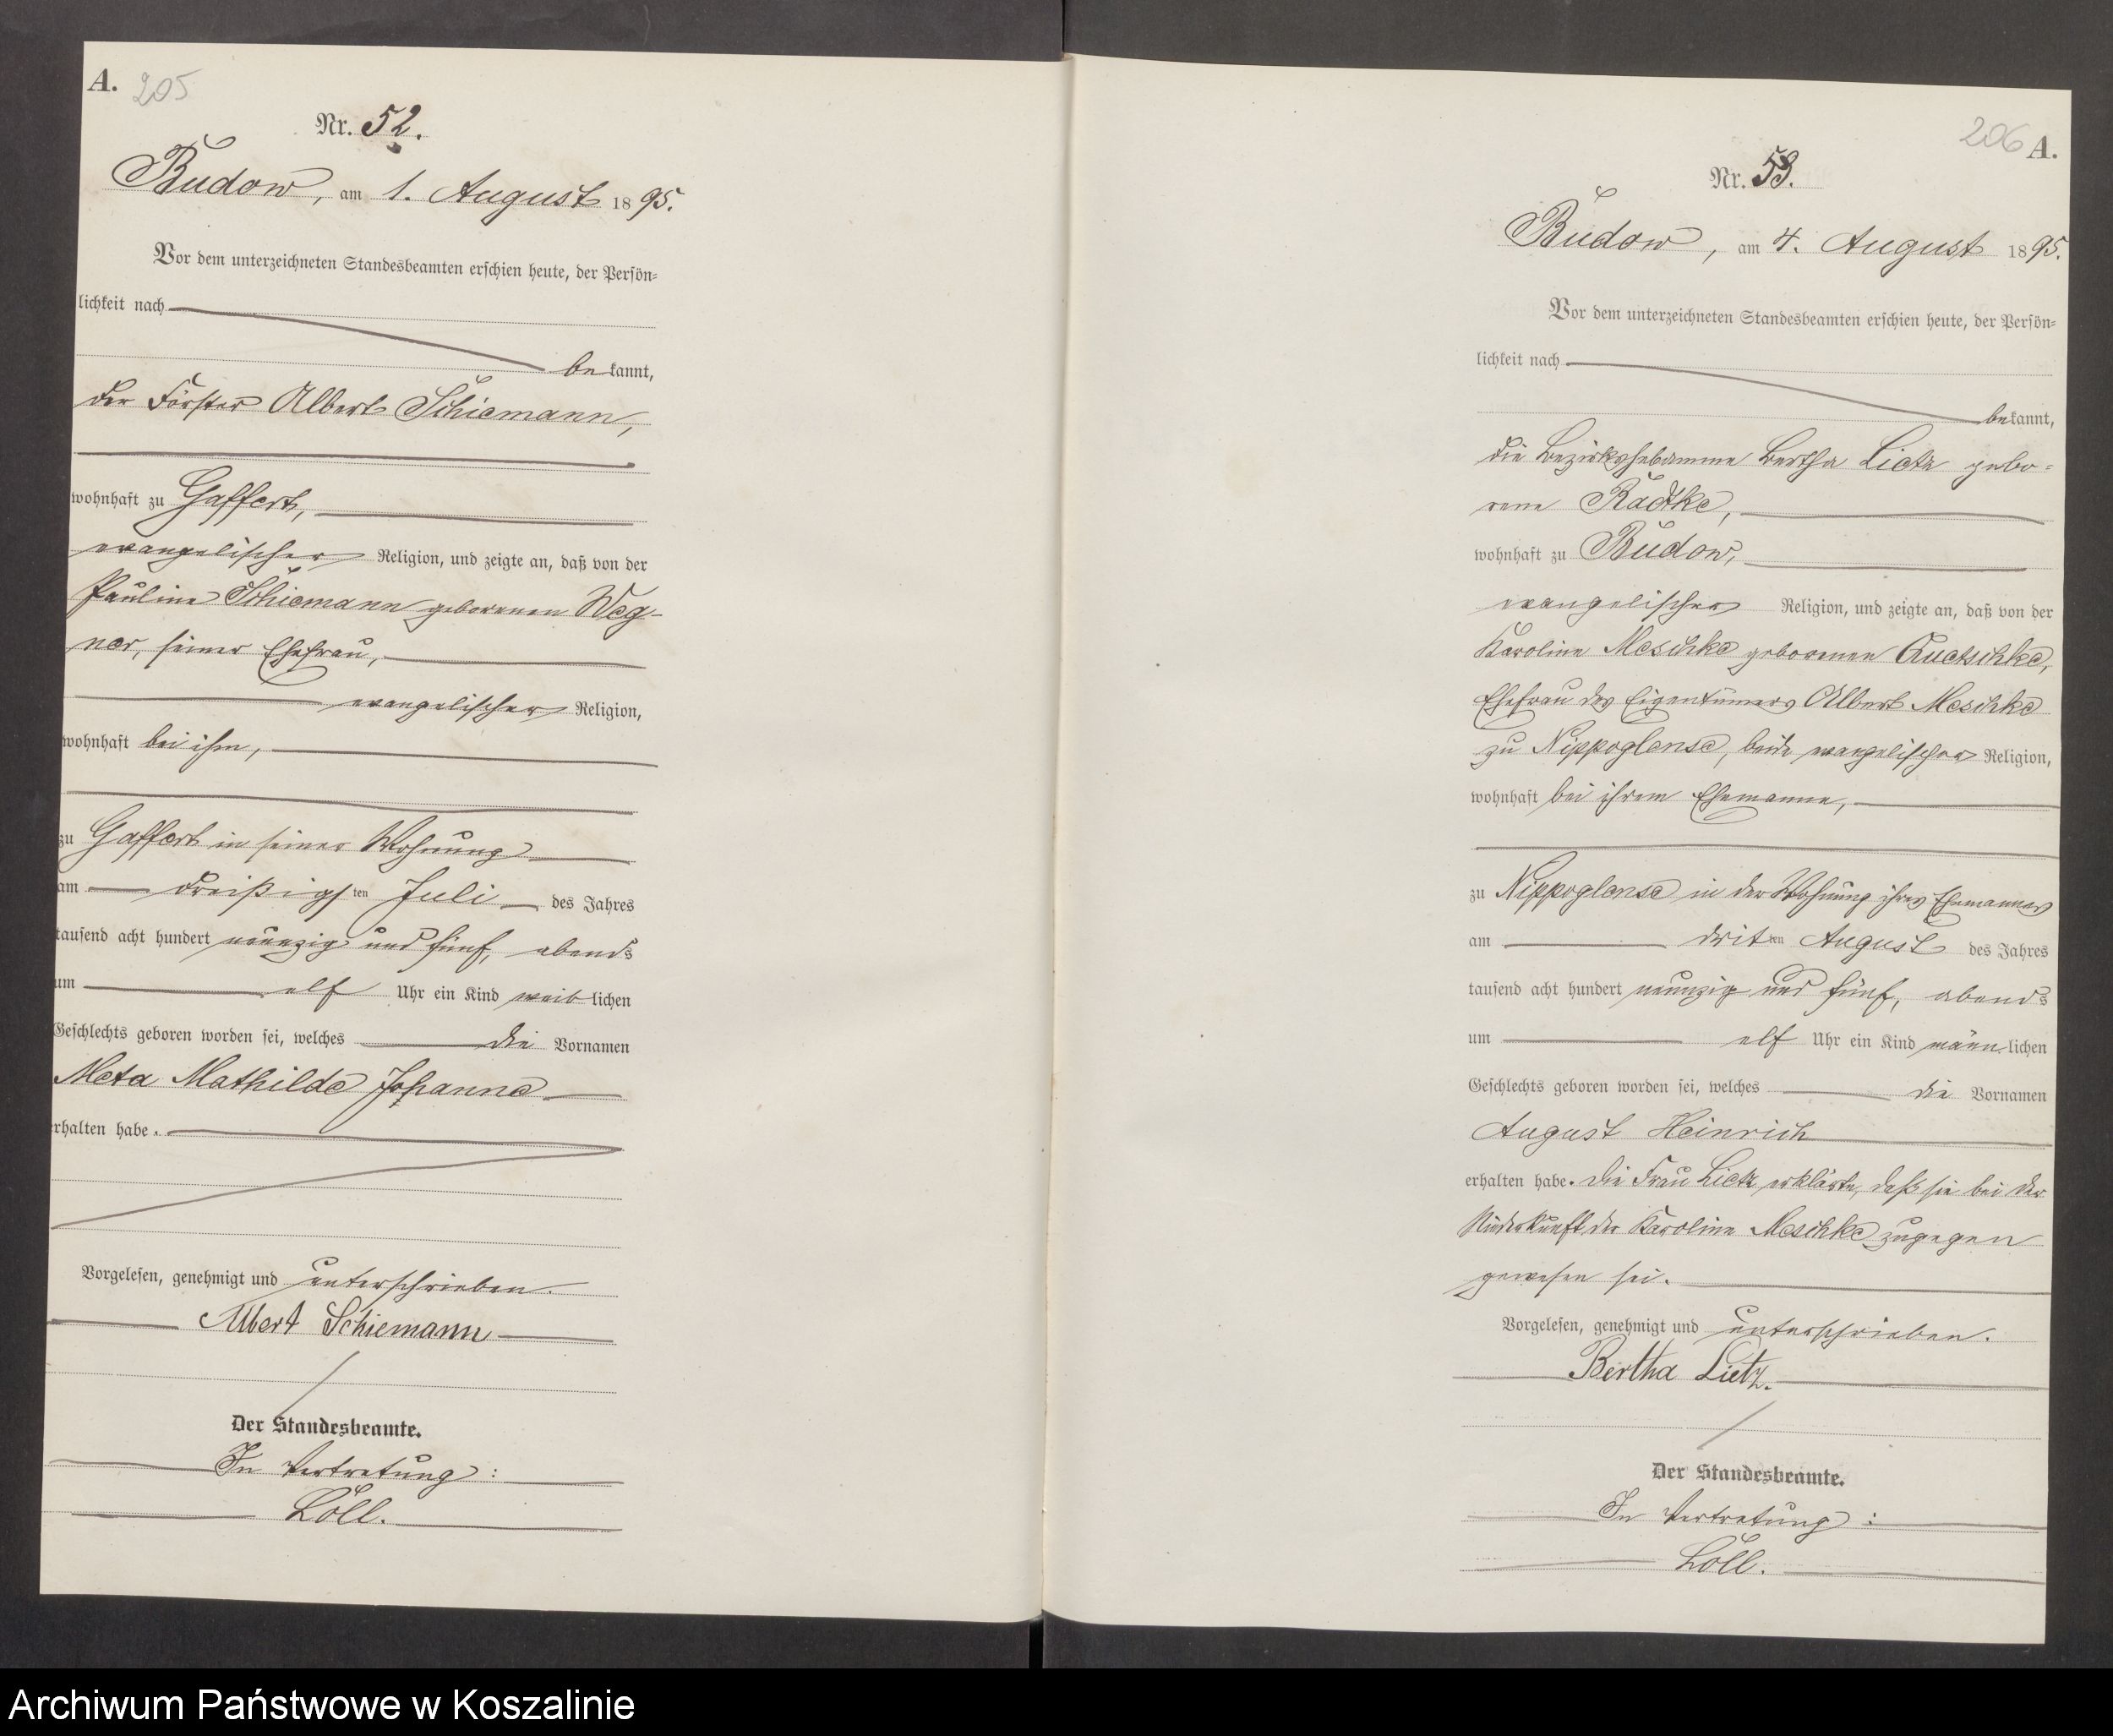 A. 205
Nr. 52.
Budow, am 1. August 1895.
Vor dem unterzeichneten Standesbeamten erschien heute, der Persön-
lichkeit nach
bekannt,
der Förster Albert Schiemann,
wohnhaft zu Gaffert,
evangelischer Religion, und zeigte an, daß von der
Pauline Schiemann geborenen Weg-
ner, seiner Ehefrau,
evangelischer Religion,
wohnhaft bei ihm,
zu Gaffert in seiner Wohnung
am dreißigsten Juli des Jahres
tausend acht hundert neunzig und fünf, abends
um elf Uhr ein Kind weiblichen
Geschlechts geboren worden sei, welches die Vornamen
Meta Mathilde Johanna
erhalten habe.
Vorgelesen, genehmigt und unterschrieben.
Albert Schiemann
Der Standesbeamte.
In Vertretung:
Löll.
206 A.
Nr. 53.
Budow, am 4. August 1895.
Vor dem unterzeichneten Standesbeamten erschien heute, der Persön-
lichkeit nach
bekannt,
die Bezirkshebamme Bertha Lietz gebo-
rene Radtke,
wohnhaft zu Budow,
evangelischer Religion, und zeigte an, daß von der
Karoline Meschke geborenen Quetschke,
Ehefrau des Eigentümers Albert Meschke
zu Nippoglense, beide evangelischer Religion,
wohnhaft bei ihrem Ehemanne,
zu Nippoglense in der Wohnung ihres Ehemannes
am dritten August des Jahres
tausend acht hundert neunzig und fünf, abends
um elf Uhr ein Kind männlichen
Geschlechts geboren worden sei, welches die Vornamen
August Heinrich
erhalten habe. Die Frau Lietz erklärte, daß sie bei der
Niederkunft der Karoline Meschke zugegen
gewesen sei.
Vorgelesen, genehmigt und unterschrieben.
Bertha Lietz.
Der Standesbeamte.
In Vertretung:
Löll.
Archiwum Państwowe w Koszalinie